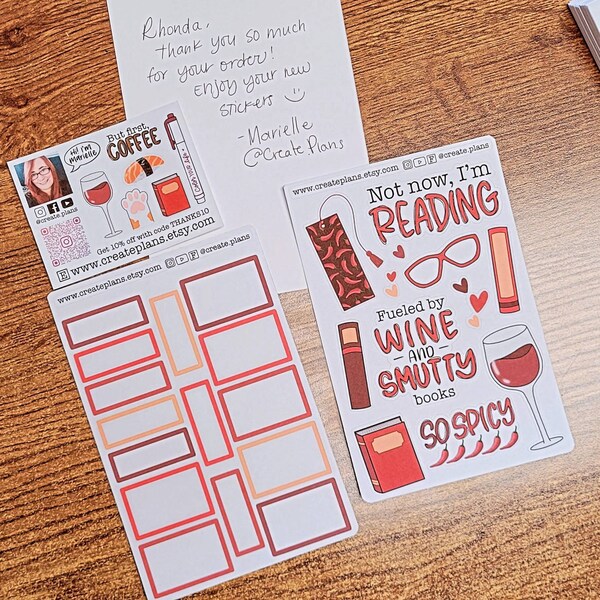 Rhonda,
thank you so much
for your order!
Enjoy your new
stickers
-Marielle
@CreatePlans
Hi! I'm
Marielle
But first,
COFFEE
@create.plans
Get 10% off with code THANKS10
www.createplans.etsy.com
www.createplans.etsy.com @create.plans
www.createplans.etsy.com @create.plans
Not now, I'm
READING
Fueled by
WINE
-AND-
SMUTTY
books
SO SPICY